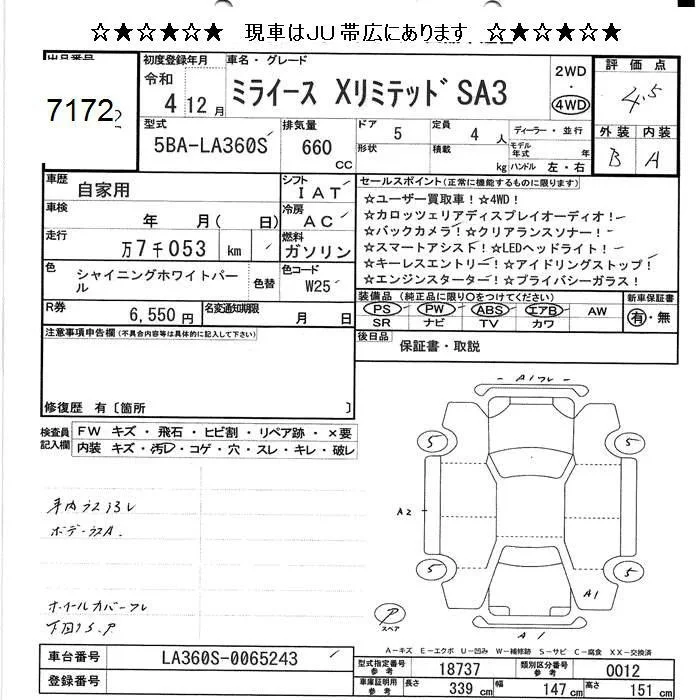 ☆★☆★☆★☆ 現車はJU帯広にあります ☆★☆★☆★☆
出品番号
7172
初度登録年月
令和
4 12 月
車名・グレード
ミライース Xリミテッド SA3
2WD
・
4WD
評価点
4.5
外装 内装
B A
型式
5BA-LA360S
排気量
660
CC
ドア
5
形状
定員
4 人
積載
kg
ディーラー・並行
モデル
年式 年
ハンドル 左・右
車歴
自家用
シフト
IAT
車検
年 月( 日)
冷房
AC
走行
万7千053 km
燃料
ガソリン
色
シャイニングホワイトパール
色替
色コード
W25
R券
6,550 円
名変通知期限
月 日
セールスポイント(正常に機能するものに限ります)
☆ユーザー買取車!☆4WD!
☆カロッツェリアディスプレイオーディオ!
☆バックカメラ!☆クリアランスソナー!
☆スマートアシスト!☆LEDヘッドライト!
☆キーレスエントリー!☆アイドリングストップ!
☆エンジンスターター!☆プライバシーガラス!
装備品(純正品に限り○をつけてください)
PS PW ABS エアB AW
SR ナビ TV カワ
新車保証書
有・無
後日品
保証書・取説
注意事項申告欄(不具合内容等は具体的に記入して下さい)
修復歴 有〔箇所 〕
検査員
記入欄
FW キズ・飛石・ヒビ割・リペア跡・×要
内装 キズ・汚レ・コゲ・穴・スレ・キレ・破レ
ボデーラスA.
ホイールカバーフレ
A1フレ
5
5
A2
5
5
A1
A1
P
スペア
A-キズ E-エクボ U-凹み W-補修跡 S-サビ C-腐食 XX-交換済
車台番号
LA360S-0065243
登録番号
型式指定番号
参考
18737
類別区分番号
参考
0012
車庫証明用
参考
長さ
339 cm
幅
147 cm
高さ
151 cm